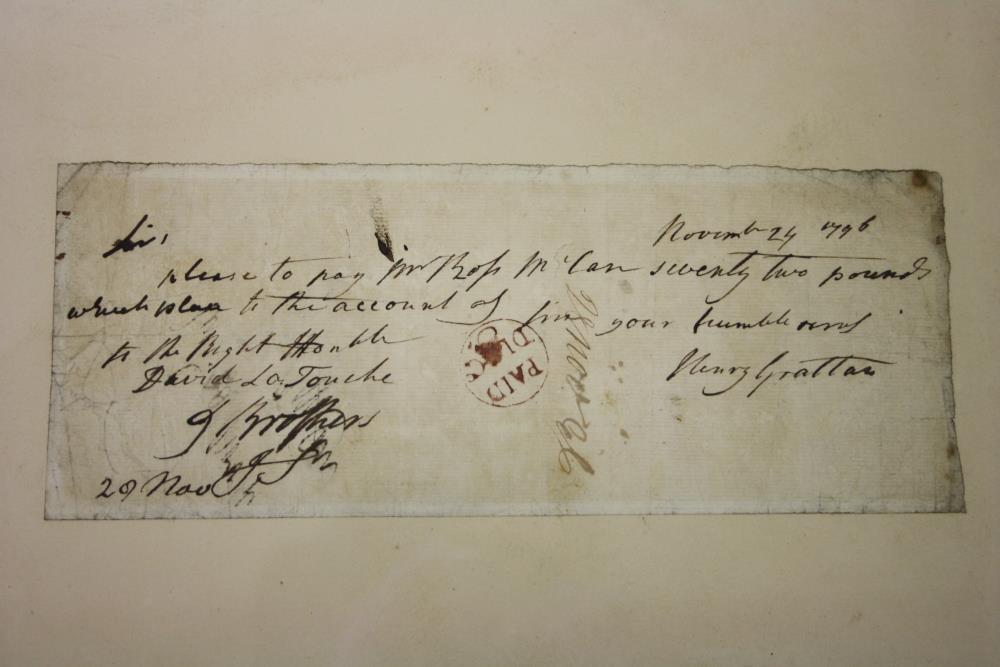 Sir,
Novembr 24 1796
please to pay Mr Ross McCan seventy two pounds
which place to the account of Sir your humble servt
to the Right Honble
David La Touche
Henry Grattan
& Brothers
29 Nov
PAID